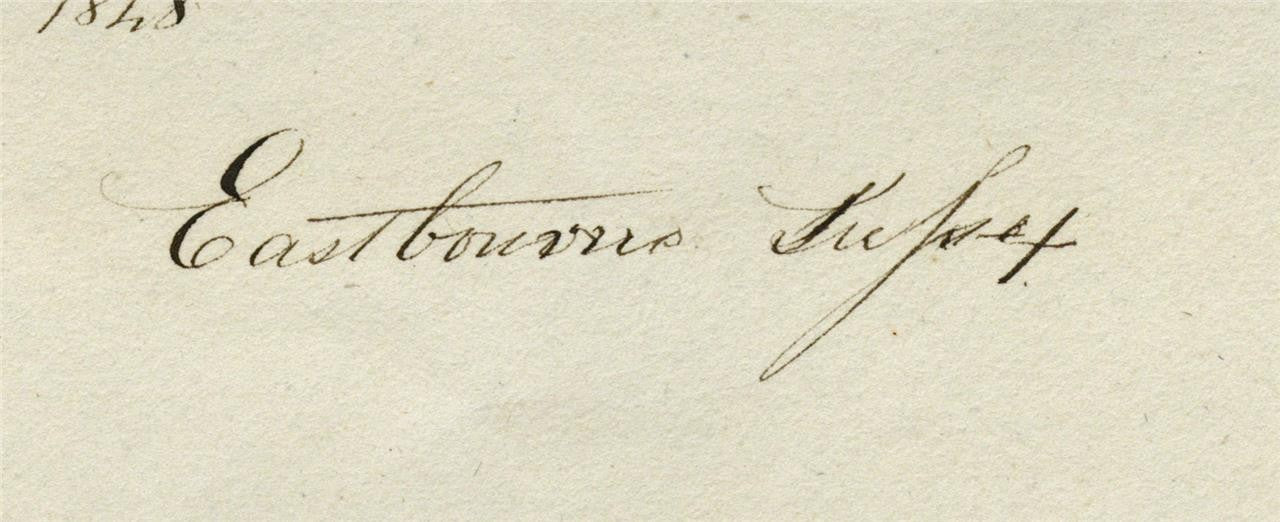 1848
Eastbourne Sussex